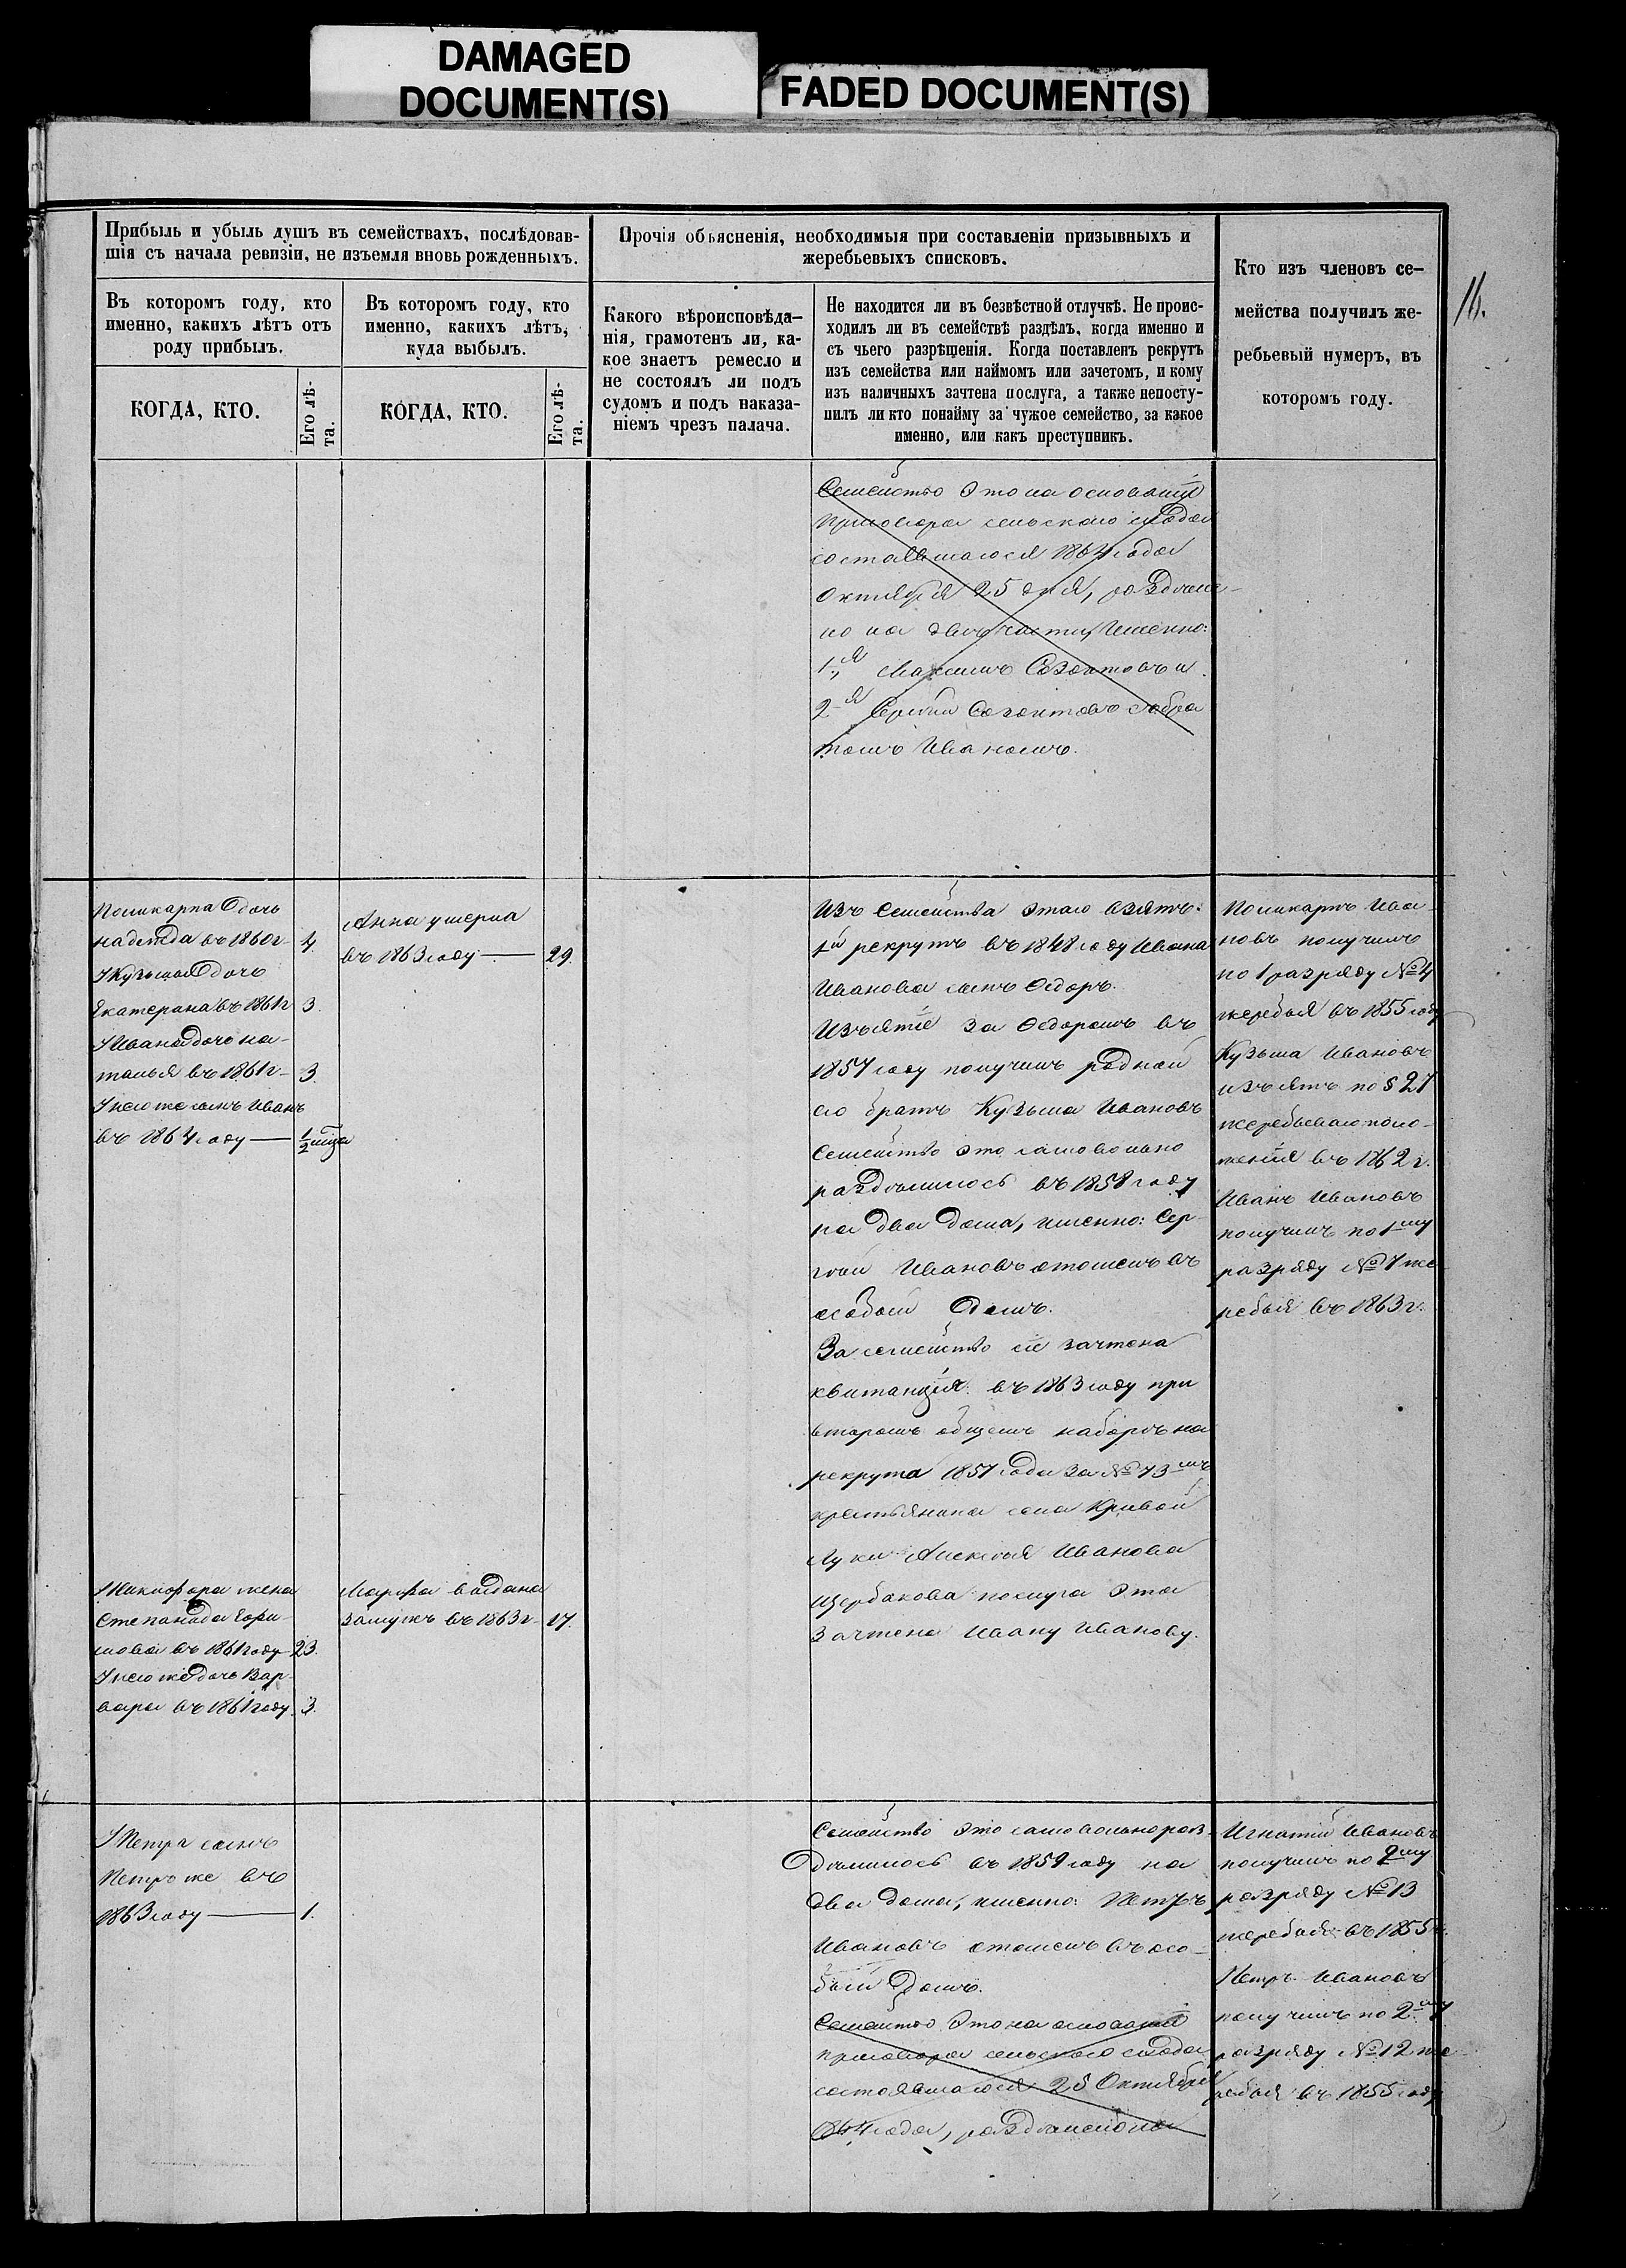 DAMAGED
DOCUMENT(S)
FADED DOCUMENT(S)
16.
Прибыль и убыль душъ въ семействахъ, послѣдовав-
шія съ начала ревизіи, не изъемля вновь рожденныхъ.
Въ которомъ году, кто
именно, какихъ лѣтъ отъ
роду прибылъ.
Въ которомъ году, кто
именно, какихъ лѣтъ,
куда выбылъ.
КОГДА, КТО.
Его лѣ-
та.
КОГДА, КТО.
Его лѣ-
та.
Прочія объясненія, необходимыя при составленіи призывныхъ и
жеребьевыхъ списковъ.
Какого вѣроисповѣда-
нія, грамотенъ ли, ка-
кое знаетъ ремесло и
не состоялъ ли подъ
судомъ и подъ наказа-
ніемъ чрезъ палача.
Не находится ли въ безвѣстной отлучкѣ. Не проис-
ходилъ ли въ семействѣ раздѣлъ, когда именно и
съ чьего разрѣшенія. Когда поставленъ рекрутъ
изъ семейства или наймомъ или зачетомъ, и кому
изъ наличныхъ зачтена послуга, а также непосту-
пилъ ли кто понайму за чужое семейство, за какое
именно, или какъ преступникъ.
Кто изъ членовъ се-
мейства получилъ же-
ребьевый нумеръ, въ
которомъ году.
Семейство это на основаніи
приговора сельскаго схода
состоявшагося 1864 года
октября 25 дня, раздѣле-
но на двѣ части, именно:
1-я Максимъ Созонтовъ и
2-я Сергѣй Созонтовъ съ бра
томъ Иваномъ.
Поликарпа дочь
надежда въ 1860г 4.
У Кузьмы дочь
Екатерина въ 1861г 3.
У Ивана дочь на-
талья въ 1861г 3.
У него же сынъ Иванъ
въ 1864 году 1/2 мѣца
Анна умерла
въ 1863 году 29.
Изъ Семейства этаго взятъ:
1й рекрутъ въ 1848 году Ивана
Иванова сынъ Ѳедоръ.
Изъятіе за Ѳедоромъ въ
1857 году получилъ родной
его братъ Кузьма Ивановъ
Семейство это самовольно
раздѣлилось въ 1858 году
на два дома, именно: Сер-
гѣй Ивановъ отошелъ въ
особый домъ.
За семейство сіе зачтена
квитанція въ 1863 году при
второмъ общемъ наборѣ на
рекрута 1857 года за № 73мъ
крестьянина села Кривой
Луки Алексѣя Иванова
Щербакова послуга эта
зачтена Ивану Иванову.
Поликарпъ Ива-
новъ получилъ
по 1 разряду № 4
жеребья въ 1855 году
Кузьма Ивановъ
изъятъ по § 27
жеребьеваго поло-
женія въ 1862 г.
Иванъ Ивановъ
получилъ по 1му
разряду № 7 же-
ребья въ 1863 г.
У Никифора жена
Степанида Ефи-
мова въ 1861 году 23.
У него же дочь Вар-
вара въ 1861 году 3.
Марфа выдана
замужъ въ 1863 г 17.
У Петра сынъ
Петръ же въ
1863 году 1.
Семейство это самовольно раз-
дѣлилось въ 1859 году на
два дома, именно: Петръ
Ивановъ отошелъ въ осо-
бый домъ.
Семейство это на основаніи
приговора сельскаго схода
состоявшагося 25 Октября
1864 года, раздѣлено на
Игнатій Ивановъ
получилъ по 2му
разряду № 13
жеребья въ 1855 г.
Петръ Ивановъ
получилъ по 2му
разряду № 12 же-
ребья въ 1855 году